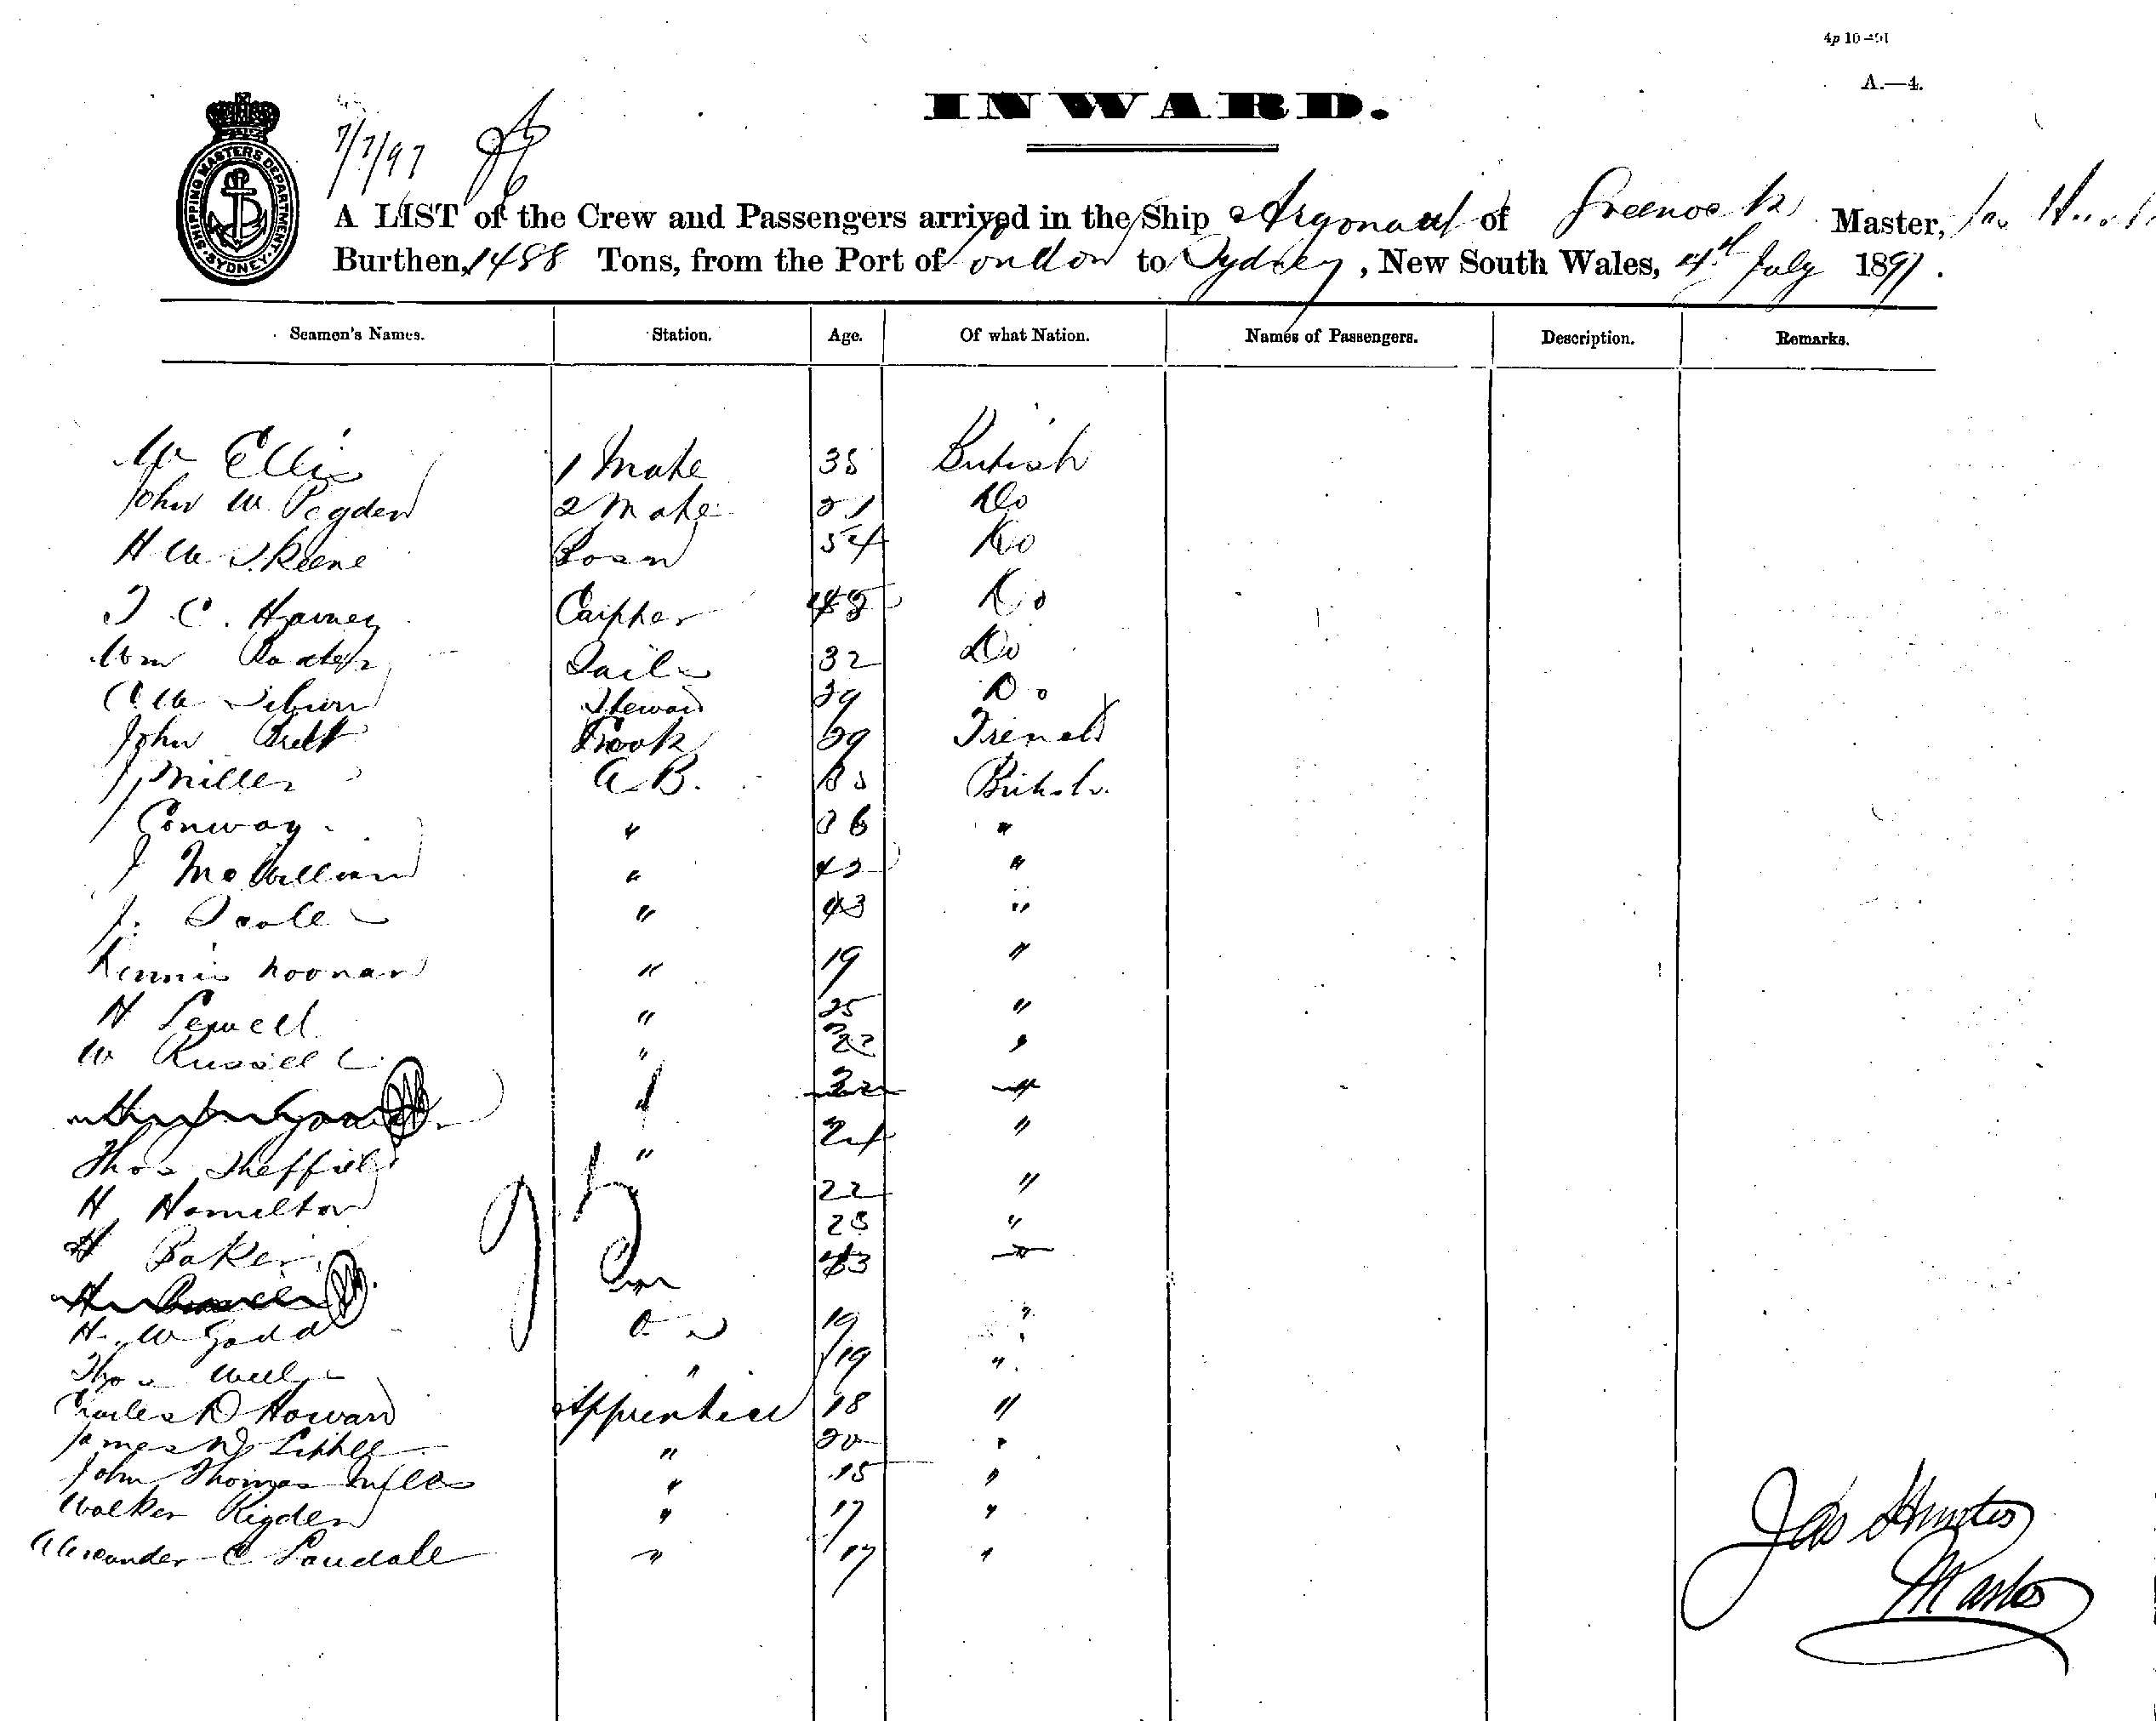 4p 10-91
A.—4.
INWARD.
SHIPPING MASTERS DEPARTMENT SYDNEY
7/7/97
A LIST of the Crew and Passengers arrived in the Ship Argonaut of Greenock Master, Jas
Burthen, 1488 Tons, from the Port of London to Sydney, New South Wales, 4th July 1897.
Seamen's Names. Station. Age. Of what Nation. Names of Passengers. Description. Remarks.
Ellis 1 Mate British
John W. Pegden 2 Mate 21 Do
H W Skene Bosn 54 Do
C. Harvey 48 Do
Wm Sail 32 Do
Steward Do
John Brett Cook French
J Miller A B. British
J Conway " 36 "
J McWilliam " 42 "
J. " 43 "
Dennis Noonan " 19 "
H Sewell " 25 "
W Russell " 22 "
22 "
Thos Sheffield " 24 "
H Hamilton 22 "
H Baker "
H. W Gadd O S 19 "
Thos " 19 "
Charles D Howard Apprentice 18 "
James W Liddell " 20 "
John Thomas " 15 "
Walker Rigden " 17 "
Alexander C Landale " 17 "
Jas Hunter
Master